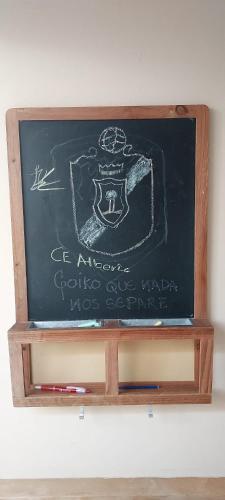 CE Alberic
Goiko QUE NADA
NOS SEPARE